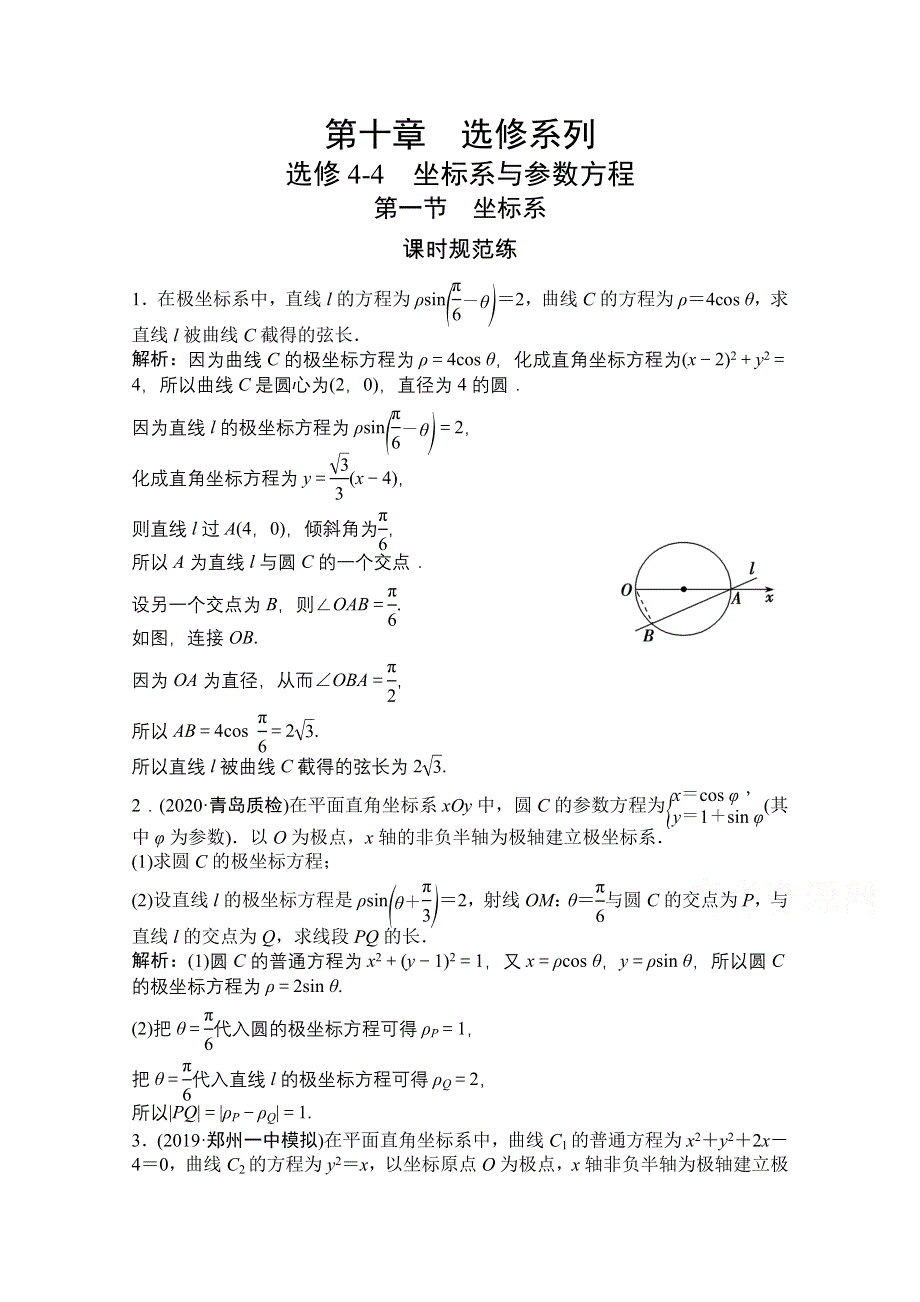 第十章　选修系列
选修 4-4　坐标系与参数方程
第一节　坐标系
课时规范练
1．在极坐标系中，直线 l 的方程为 ρsin(π/6－θ)＝2，曲线 C 的方程为 ρ＝4cos θ，求
直线 l 被曲线 C 截得的弦长．
解析：因为曲线 C 的极坐标方程为 ρ＝4cos θ，化成直角坐标方程为(x－2)²＋y²＝
4，所以曲线 C 是圆心为(2，0)，直径为 4 的圆．
因为直线 l 的极坐标方程为 ρsin(π/6－θ)＝2，
化成直角坐标方程为 y＝√3/3(x－4)，
则直线 l 过 A(4，0)，倾斜角为π/6，
所以 A 为直线 l 与圆 C 的一个交点．
设另一个交点为 B，则∠OAB＝π/6.
如图，连接 OB.
因为 OA 为直径，从而∠OBA＝π/2，
所以 AB＝4cos π/6＝2√3.
所以直线 l 被曲线 C 截得的弦长为 2√3.
O
l
A
x
B
2．(2020·青岛质检)在平面直角坐标系 xOy 中，圆 C 的参数方程为{x＝cos φ，y＝1＋sin φ(其
中 φ 为参数)．以 O 为极点，x 轴的非负半轴为极轴建立极坐标系．
(1)求圆 C 的极坐标方程；
(2)设直线 l 的极坐标方程是 ρsin(θ＋π/3)＝2，射线 OM：θ＝π/6与圆 C 的交点为 P，与
直线 l 的交点为 Q，求线段 PQ 的长．
解析：(1)圆 C 的普通方程为 x²＋(y－1)²＝1，又 x＝ρcos θ，y＝ρsin θ，所以圆 C
的极坐标方程为 ρ＝2sin θ.
(2)把 θ＝π/6代入圆的极坐标方程可得 ρP＝1，
把 θ＝π/6代入直线 l 的极坐标方程可得 ρQ＝2，
所以|PQ|＝|ρP－ρQ|＝1.
3．(2019·郑州一中模拟)在平面直角坐标系中，曲线 C₁ 的普通方程为 x²＋y²＋2x－
4＝0，曲线 C₂ 的方程为 y²＝x，以坐标原点 O 为极点，x 轴非负半轴为极轴建立极